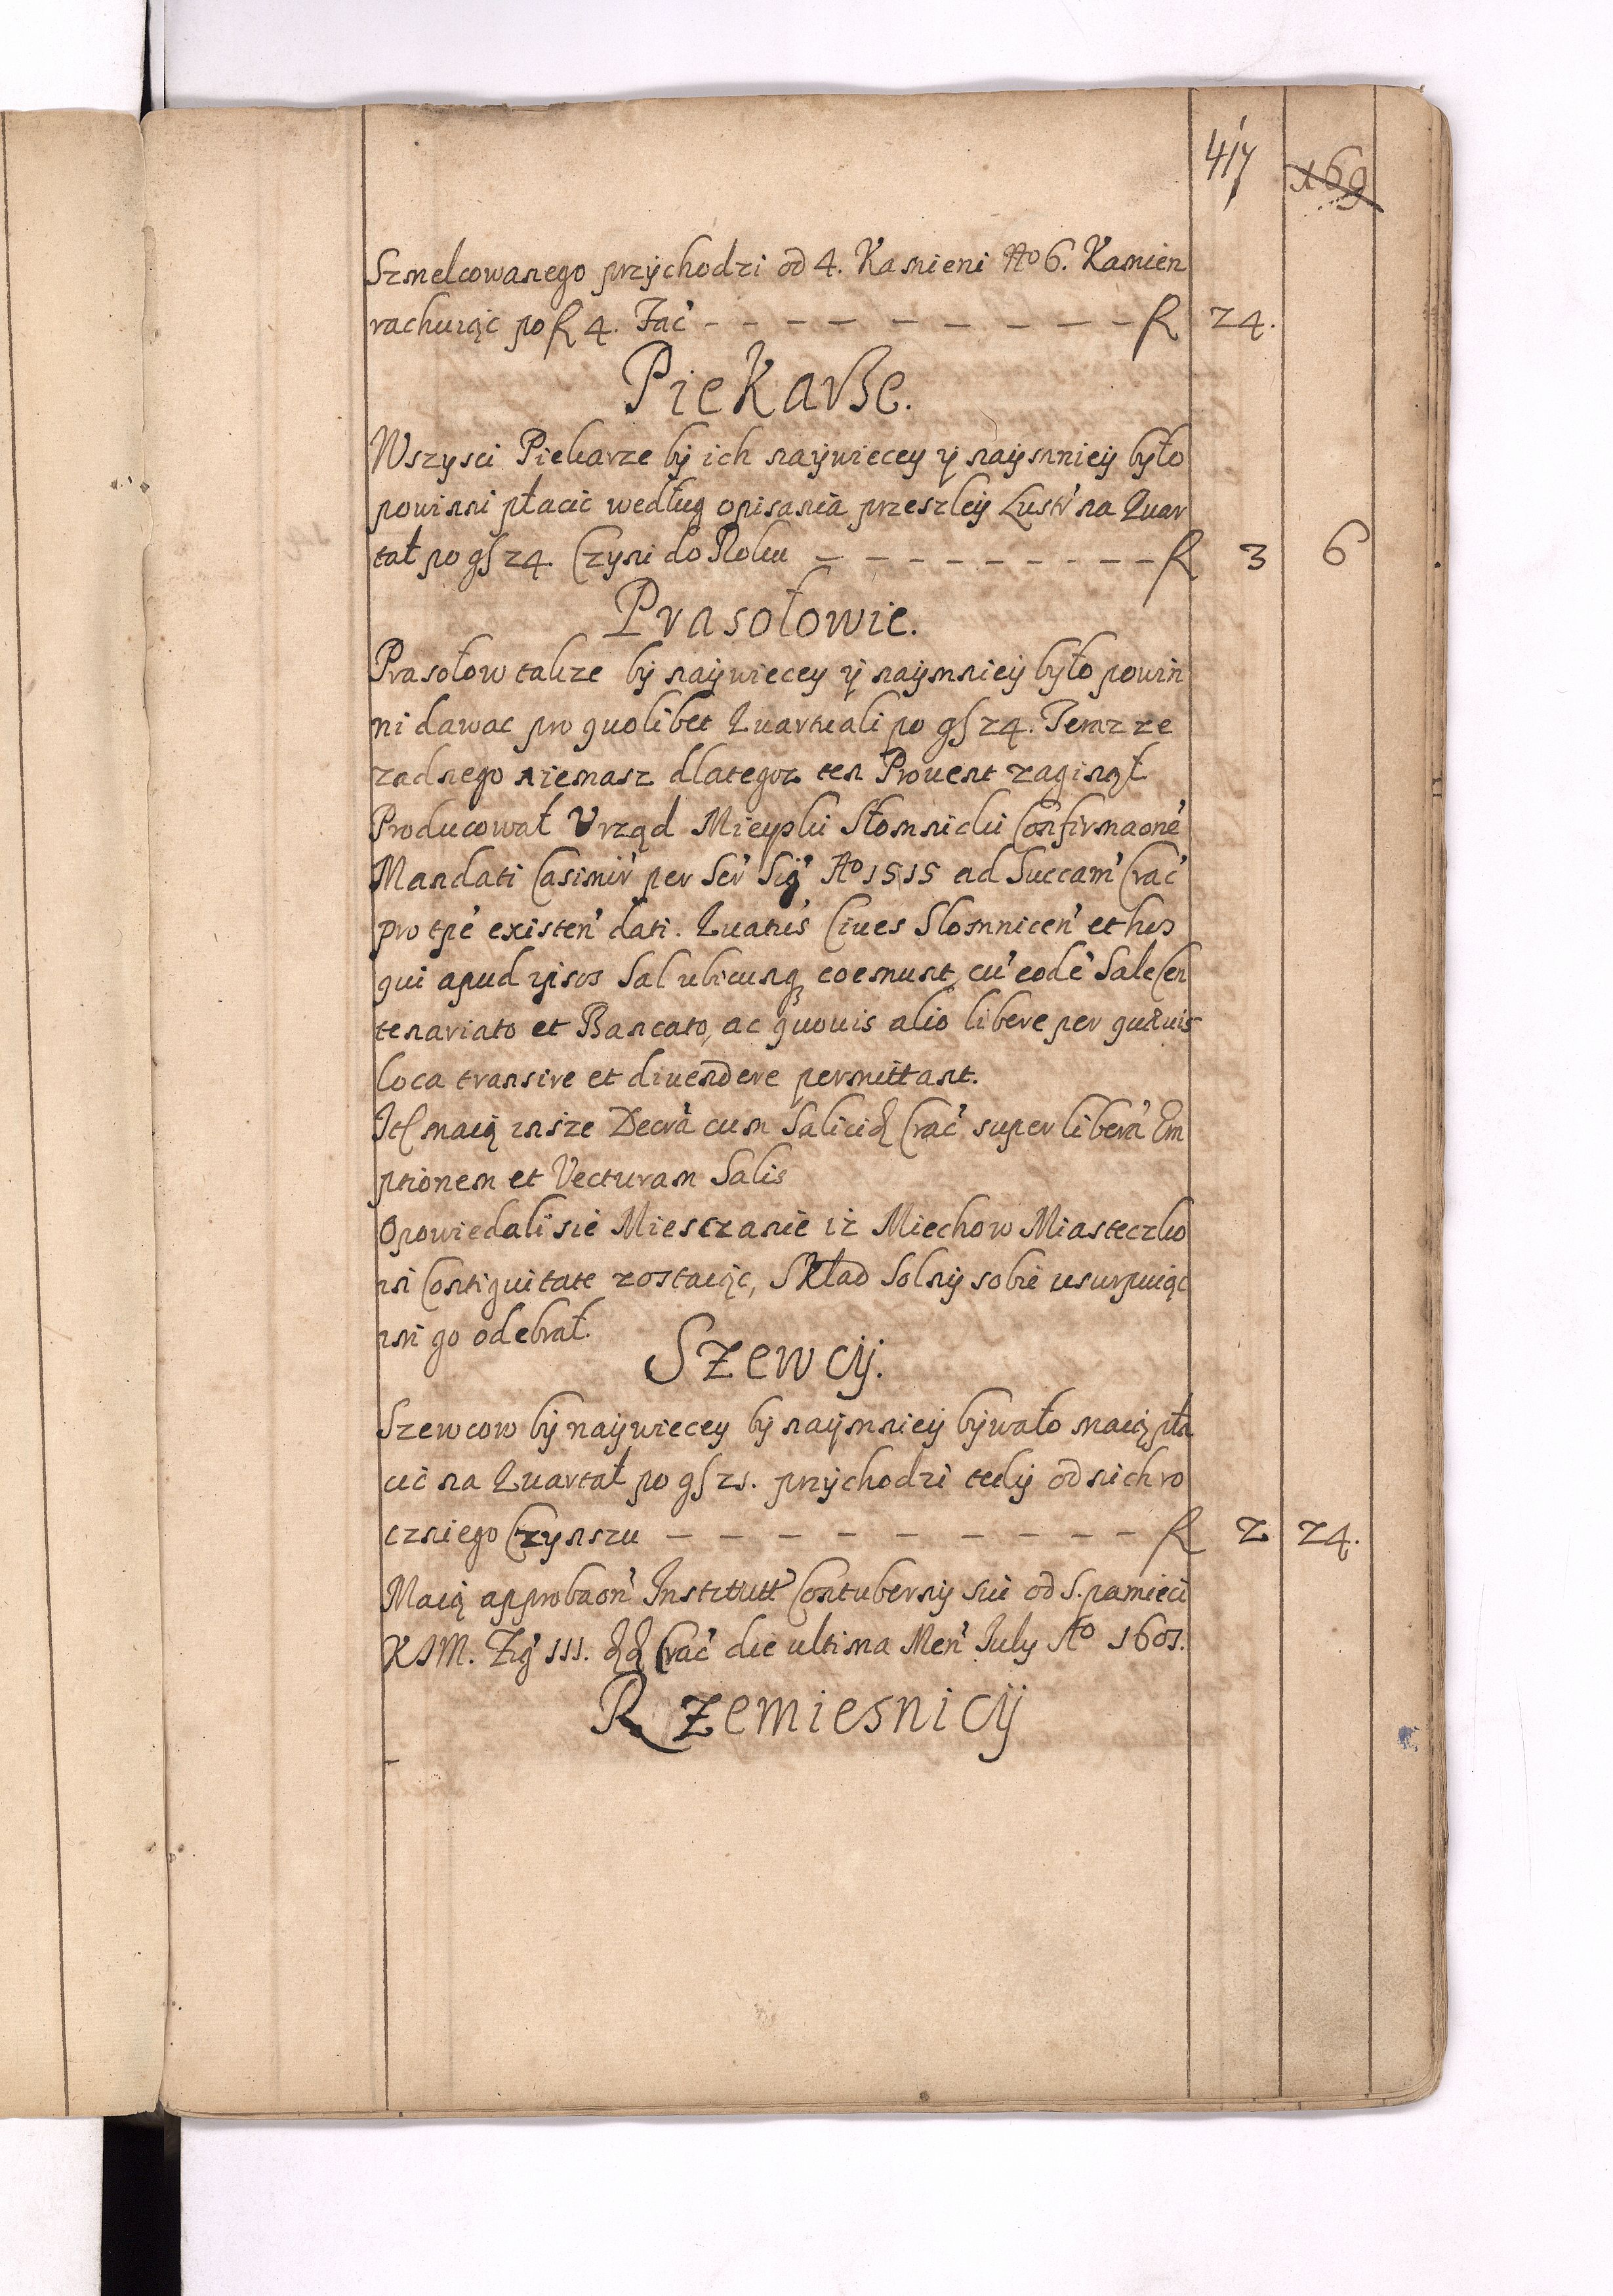 417 169
Szmelcowanego przÿchodzi od 4. Kamieni Ao 6. Kamien
rachuiąc po fl 4. Fac' - - - - - - - - - - fl 24.
PieKarße.
Wszysci Piekarze bÿ ich naÿwiecey ÿ naÿmnieÿ było
powinni płacic według opisania przeszleÿ Lustr' na Quar
tał po gś 24. Czyni do Roku - - - - - - - - - fl 3 6
Prasołowie.
Prasołow takze bÿ naÿwiecey ÿ naÿmnieÿ było powin
ni dawac pro quolibet Quartuali po gś 24. Teraz ze
zadnego niemasz dlategoz ten Prouent zaginął
Producował Vrząd Mieyski Słomnicki Confirmaone'
Mandati Casimir' per Ser' Sig' Ao 1515 ad Succam' Crac'
pro tpe' existen' dati. Quatus' Ciues Slomnicen' et hos
qui apud ipsos Sal ubicunq coemunt, cu' eode' Sale Cen
tenariato et Bancato, ac quouis alio libere per quæuis
loca transire et diuendere permittant.
Itē maią insze Decra' cum Salicid Crac' super libera' Em
ptionem et Vecturam Salis
Opowiedali sie Miesczanie iż Miechow Miasteczko
in Contiguitate zostaiąc, Skład Solnÿ sobie usurpuiąc
im go odebrał.
Szewcÿ.
Szewcow bÿ naÿwiecey bÿ naÿmnieÿ bÿwało maią pła
cic na Quartał po gś 21. przÿchodzi tedÿ od nich ro
czniego Czynszu - - - - - - - - - fl 2 24.
Maią approbaon' Institutt' Contubernÿ sui od S. pamieci
KJM. Zig' III. dd Crac' die ultima Men' July Ao 1601.
Rzemiesnicÿ